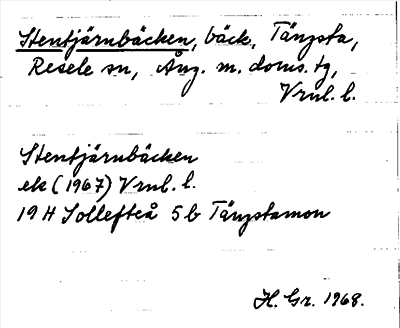 Stentjärnbäcken, bäck, Tängsta,
Resele sn, Ång. m. doms. tg,
Vrnl. l.
Stentjärnbäcken
ek (1967) Vrnl. l.
19 H Sollefteå 5b Tängstamon
H. Gr. 1968.